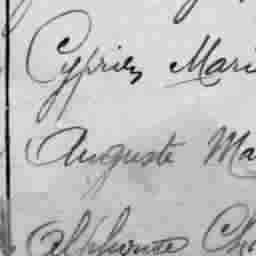 Cyprien Mari
Auguste Ma
Alphonse Ch